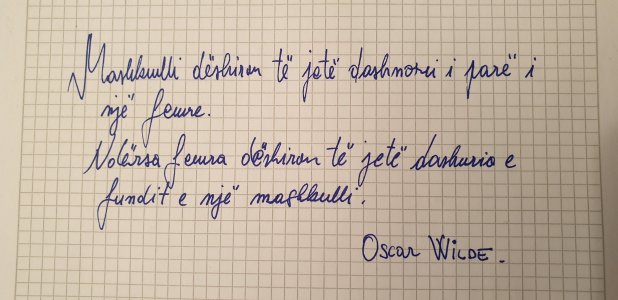 Mashkulli dëshiron të jetë dashnori i parë i
një femre.
Ndërsa femra dëshiron të jetë dashuria e
fundit e një mashkulli.
Oscar Wilde.